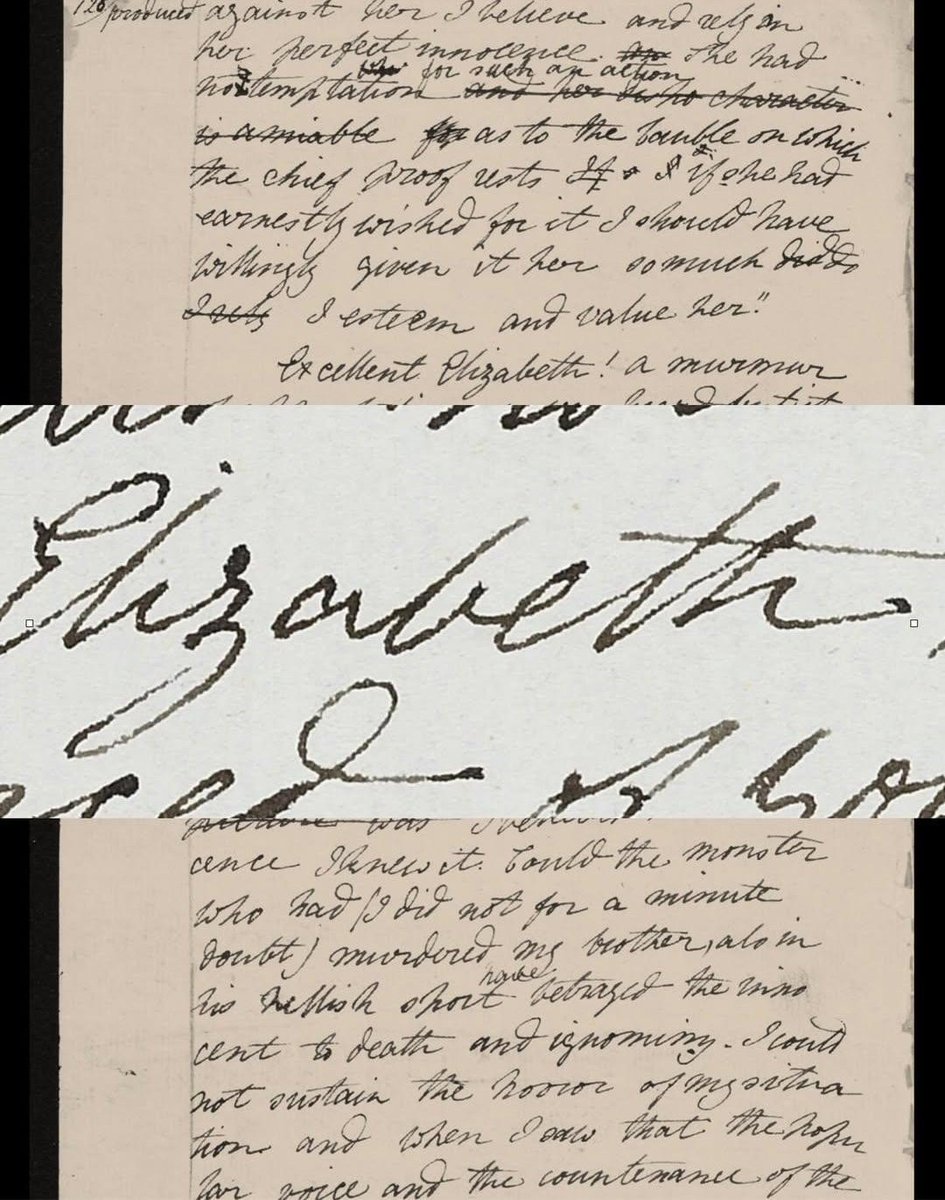 126 produced against her I believe and rely on
her perfect innocence. She had
for such an action
no temptation and her who character
is amiable for as to the bauble on which
the chief proof rests If if she had
earnestly wished for it I should have
willingly given it her so much did do
I rely I esteem and value her"
Excellent Elizabeth! a murmur
Elizabeth
was
cence I knew it. Could the monster
who had (I did not for a minute
doubt) murdered my brother, also in
have
his hellish sport betrayed the inno
cent to death and ignominy. I could
not sustain the horror of my situa
tion and when I saw that the popu
lar voice and the countenance of the